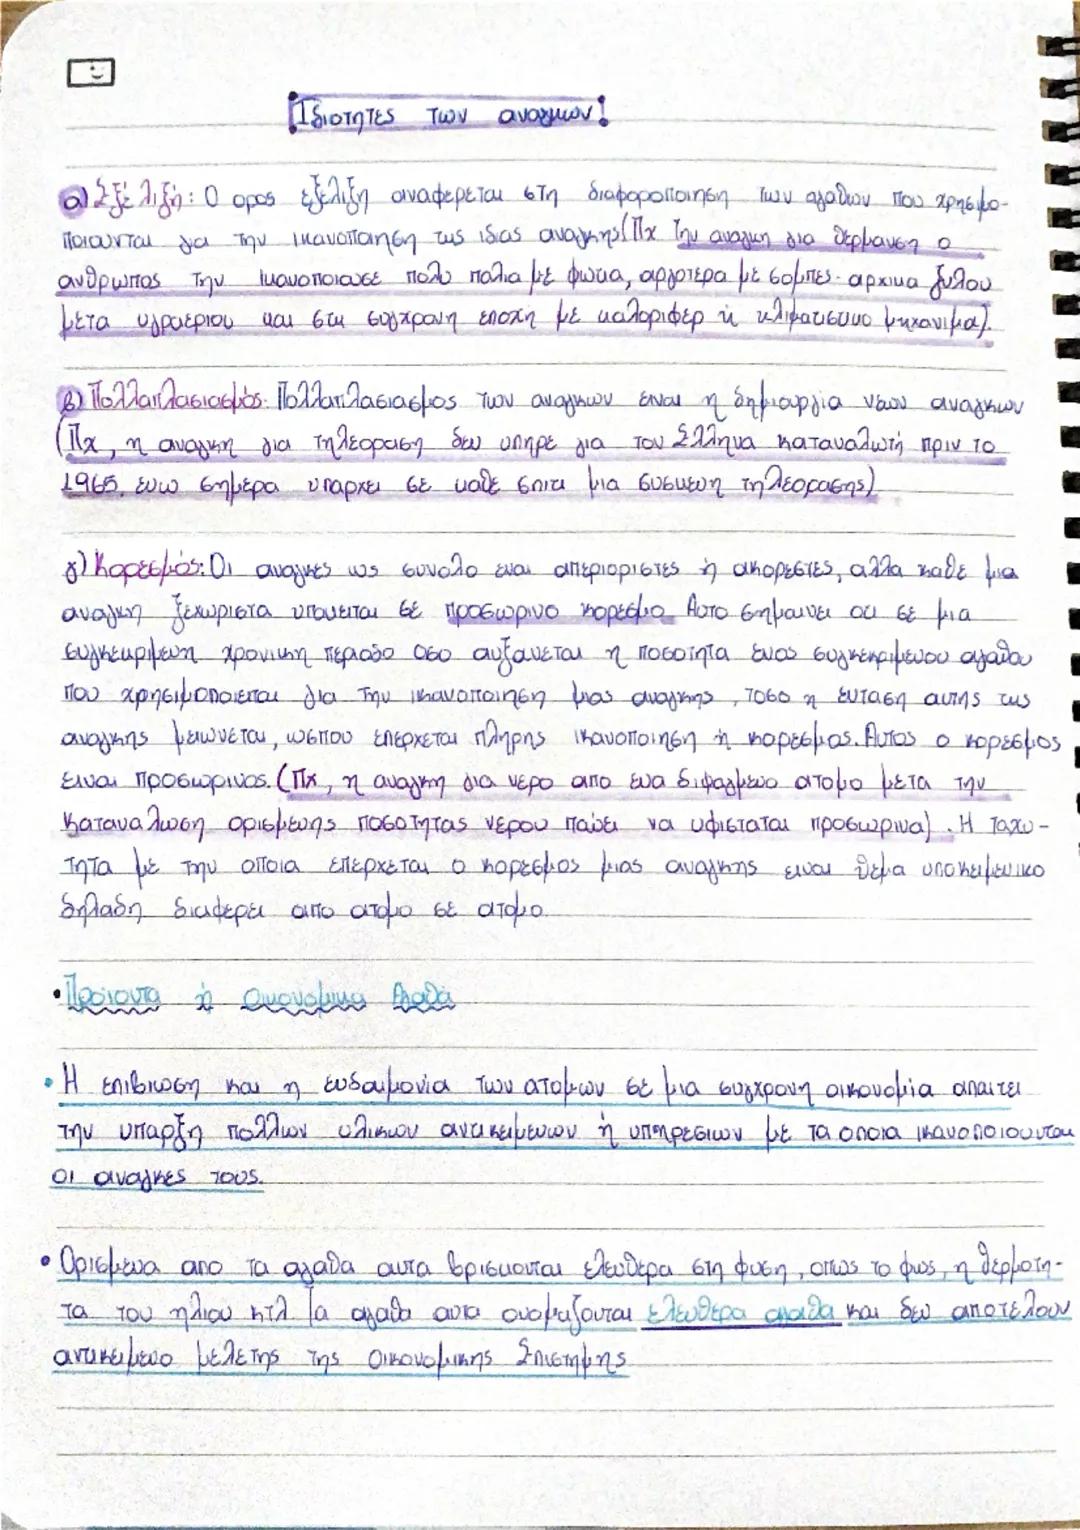 Ιδιοτητες των αναγκων!
α) Εξέλιξή: Ο ορος εξελιξη αναφερεται στη διαφοροποιηση των αγαθων που χρησιμο-
ποιουνται για την ικανοποιηση της ιδιας αναγκης (Πχ Την αναγκη για θερμανση ο
ανθρωπος την ικανοποιουσε πολυ παλια με φωτια, αργοτερα με σομπες· αρχικα ξυλου
μετα υγραεριου και στη συγχρονη εποχη με καλοριφερ ή κλιματιστικο μηχανιμα).
β) Πολλαπλασιασμός: Πολλαπλασιασμος των αναγκων ειναι η δημιουργια νεων αναγκων
(Πχ, η αναγκη για τηλεοραση δεν υπηρε για τον Ελληνα καταναλωτή πριν το
1965, ενω σημερα υπαρχει σε καθε σπιτι μια συσκευη τηλεορασης)
γ) Κορεσμός: Οι αναγκες ως συνολο ειναι απεριοριστες ή ακορεστες, αλλα καθε μια
αναγκη ξεχωριστα υποκειται σε προσωρινο κορεσμο Αυτο σημαινει οτι σε μια
συγκεκριμενη χρονικη περιοδο οσο αυξανεται η ποσοτητα ενος συγκεκριμενου αγαθου
που χρησιμοποιειται για την ικανοποιηση μιας αναγκης, τοσο η ενταση αυτης της
αναγκης μειωνεται, ωσπου επερχεται πληρης ικανοποιηση ή κορεσμος. Αυτος ο κορεσμος
ειναι προσωρινος. (Πχ, η αναγκη για νερο απο ενα διψασμενο ατομο μετα την
καταναλωση ορισμενης ποσοτητας νερου παυει να υφισταται προσωρινα). Η ταχυ-
τητα με την οποια επερχεται ο κορεσμος μιας αναγκης ειναι θεμα υποκειμενικο
δηλαδη διαφερει απο ατομο σε ατομο.
• Προιοντα ή Οικονομικα Αγαθα
• Η επιβιωση και η ευδαιμονια των ατομων σε μια συγχρονη οικονομια απαιτει
την υπαρξη πολλων υλικων αντικειμενων ή υπηρεσιων με τα οποια ικανοποιουνται
οι αναγκες τους.
• Ορισμενα απο τα αγαθα αυτα βρισκονται ελευθερα στη φυση, οπως το φως, η θερμοτη-
τα του ηλιου κτλ Τα αγαθα αυτα ονομαζονται ελευθερα αγαθα και δεν αποτελουν
αντικειμενο μελετης της Οικονομικης Επιστημης